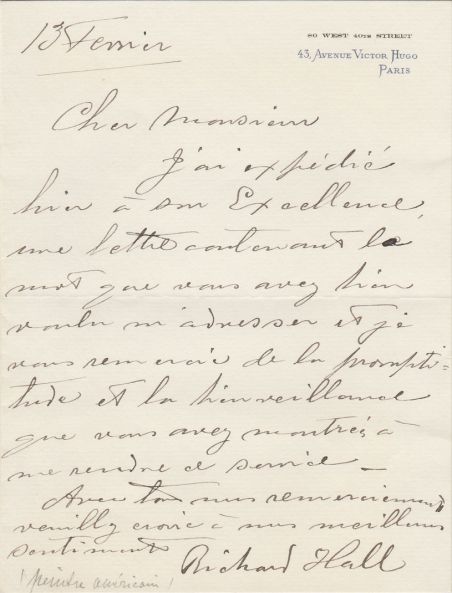 80 WEST 40TH STREET
43, AVENUE VICTOR HUGO
PARIS
13 Fevrier
Cher Monsieur
J'ai expédié
hier à son Excellence,
une lettre contenant le
mot que vous avez bien
voulu m'adresser et je
vous remercie de la prompti-
tude et la bienveillance
que vous avez montrées à
me rendre ce service _
Avec tous mes remerciements
veuillez croire à mes meilleurs
sentiments
Richard Hall
(peintre américain)